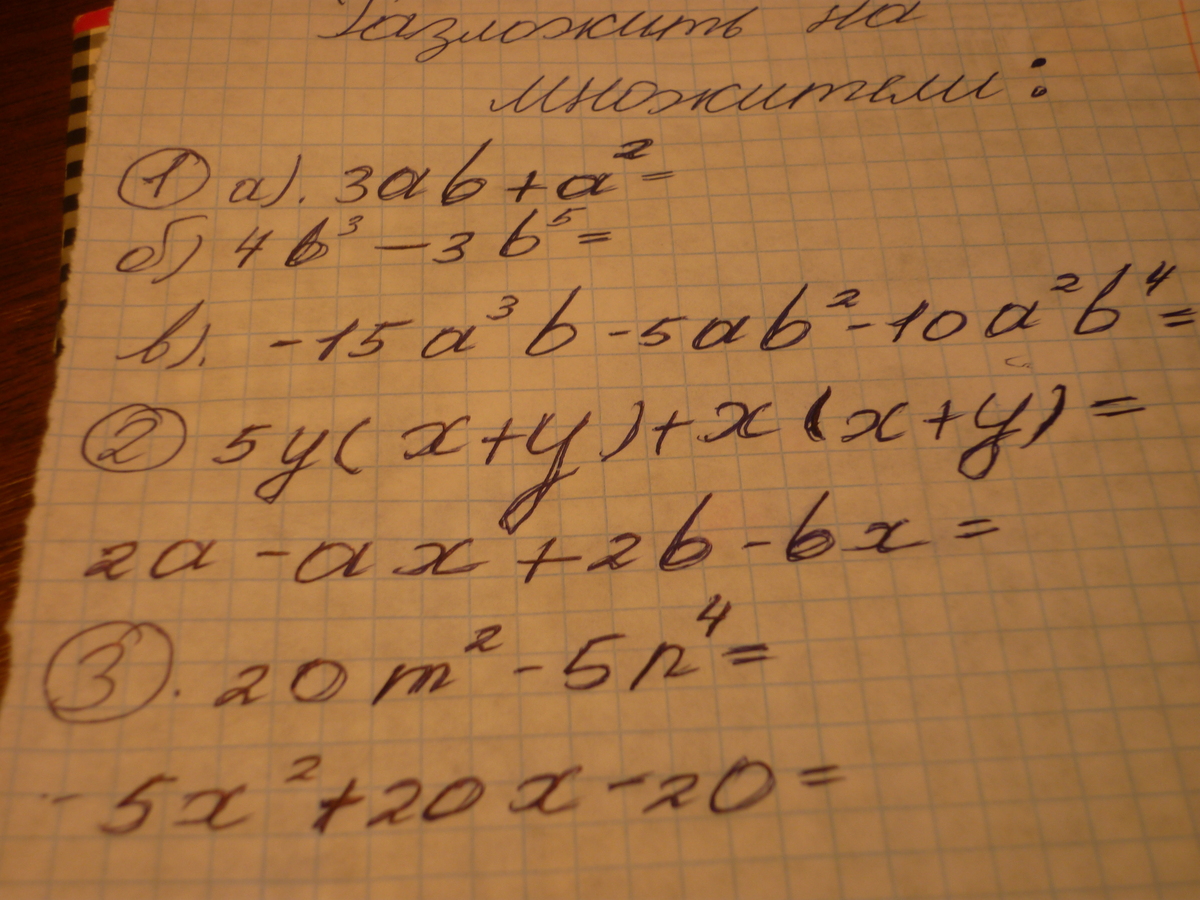 Разложить на
множители:
① а). 3ab + a² =
б) 4b³ — 3b⁵ =
в). -15a³b - 5ab² - 10a²b⁴ =
② 5y(x+y) + x(x+y) =
2a - ax + 2b - bx =
③. 20m² - 5n⁴ =
- 5x² + 20x - 20 =